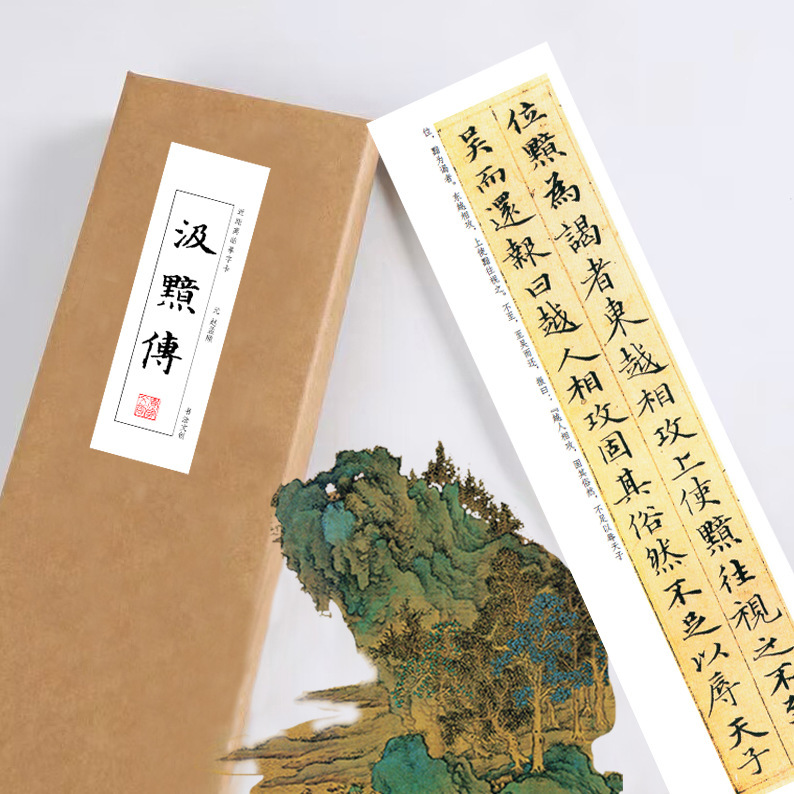 近距离临摹字卡
元 赵孟頫
书法文创
汲黯傳
位黯為謁者東越相攻上使黯往視之不至
吳而還報曰越人相攻固其俗然不足以辱天子
位，黯为谒者。东越相攻，上使黯往视之。不至，至吴而还，报曰：『越人相攻，固其俗然，不足以辱天子